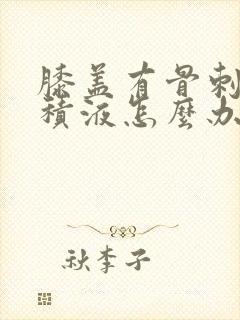 膝盖有骨刺
積液怎麼办
秋李子